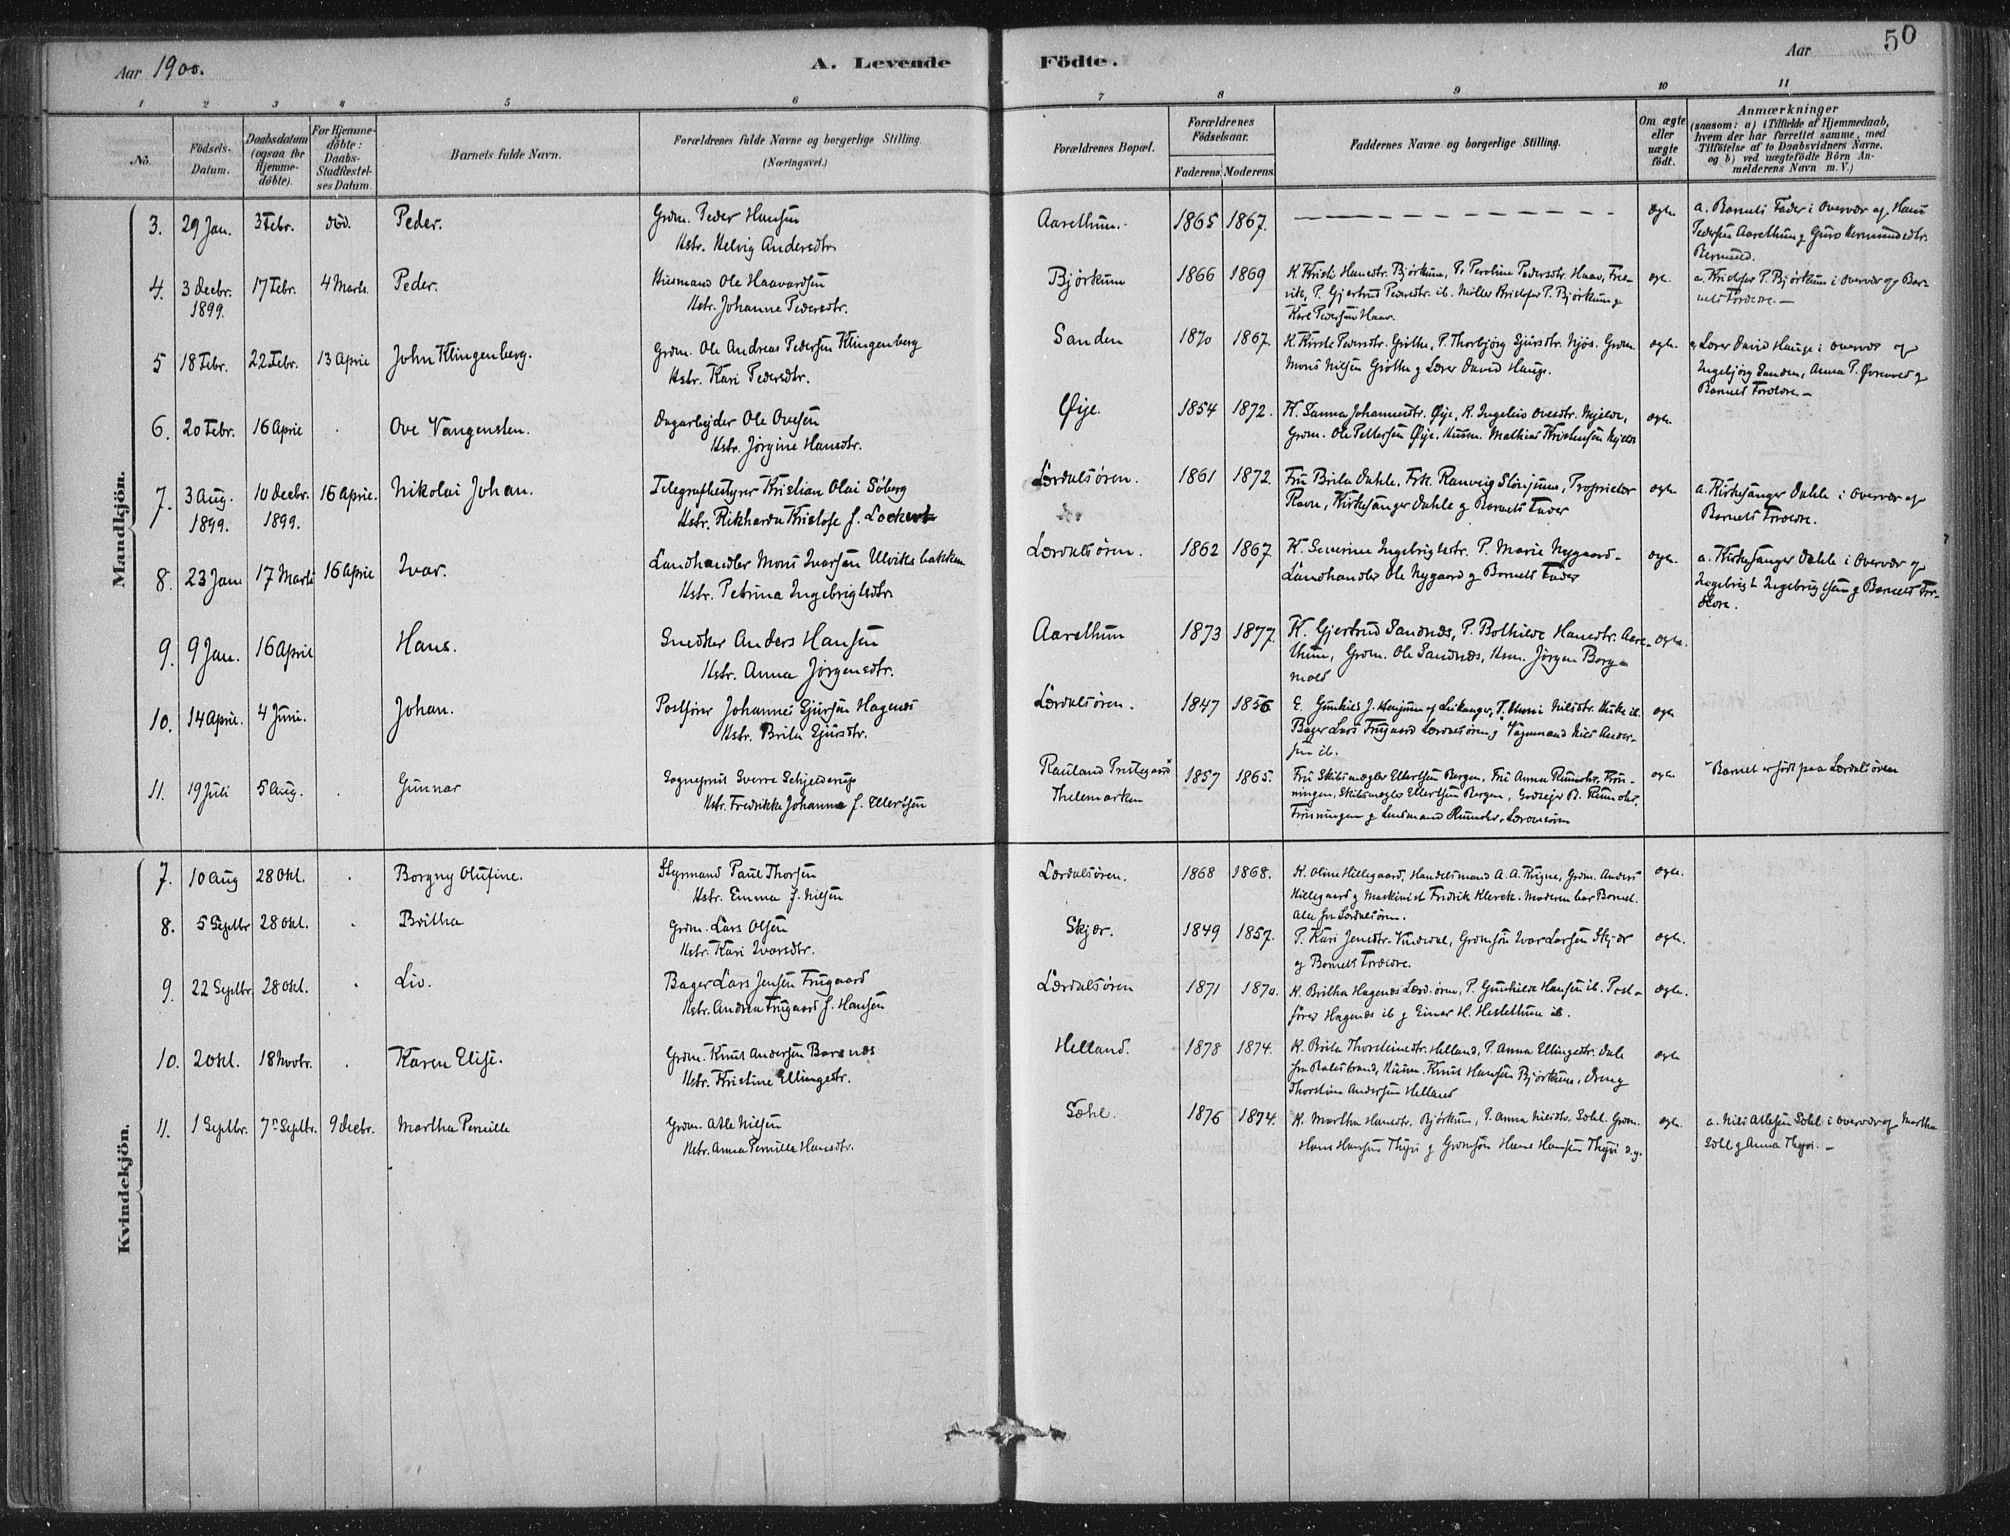 Aar 1900.
A. Levende
Födte.
Aar
50
1 2 3 4 5 6 7 8 9 10 11
No.
Födsels-
Datum.
Daabsdatum
(ogsaa for
Hjemme-
döbte).
For Hjemme-
döbte:
Daabs-
Stadfæstel-
ses Datum
Barnets fulde Navn.
Forældrenes fulde Navne og borgerlige Stilling
(Næringsvei.)
Forældrenes Bopæl.
Forældrenes
Födselsaar.
Faderens. Moderens.
Faddernes Navne og borgerlige Stilling.
Om ægte
eller
uægte
födt.
Anmærkninger
(saasom: a) i Tilfælde af Hjemmedaab,
hvem der har forrettet samme, med
Tilföielse af to Daabsvidners Navne.
og b) ved uægtefödte Börn An-
melderens Navn m. V.)
Mandkjön.
3. 29 Jan. 3 Febr. död. Peder.
Grdm. Peder Hansen
Hstr. Helvig Andersdtr.
Aarethun. 1865 1867. ægte
a. Barnets Fader i Overvær af Hans
Pedersen Aarethun og Guro
4. 3 Decbr. 1899. 17 Febr. 4 Marts. Peder.
Husmand Ole Haavardsen
Hstr. Johanne Pedersdtr.
Bjørkum 1866 1869
K. Kristi Hansdtr. Bjørkum, P. Peroline Pedersdtr. Haav, Fres-
vik, P. Gjertrud Pedersdtr. ib. Møller Kristofer P. Bjørkum og
Karl Pedersen Haav.
ægte.
a. Kristofer P. Bjørkum i Overvær af Bar-
nets Forældre. —
5 18 Febr. 22 Febr. 13 April John Klingenberg.
Grdm. Ole Andreas Pedersen Klingenberg
Hstr. Kari Pedersdtr.
Sanden 1870 1867.
K. Kirsti Pedersdtr. Grøthe, P. Thorbjörg Sjursdtr. Njøs. Grdm.
Mons Nilsen Grøthe og Lærer David Hauge.
ægte.
a. Lærer David Hauge i Overvær af
Ingebjörg Sanden, Anna P. Øvrevold og
Barnets Forældre. —
6. 20 Febr. 16 April . Ove Vangensten.
Dagarbejder Ole Ovesen
Hstr. Jørgine Hansdtr.
Øije. 1854 1872.
K. Sanna Johannesdtr. Øije, K. Ingeleiv Ovesdtr. Mjelde,
Grdm. Ole Pettersen Øije. Husm. Mathias Kristensen Mjelde
ægte.
7. 3 Aug. 1899. 10 Decbr. 1899. 16 April. Nikolai Johan.
Telegrafbestyrer Kristian Olai Söberg
Hstr. Rikharda Kristofe f. Lockert
Lærdalsören. 1861 1872.
Fru Brita Dahle. Frk. Ranveig Slinjum, Proprietær
Ravn, Kirkesanger Dahle og Barnets Fader
ægte.
a. Kirkesanger Dahle i Overvær af
Barnets Forældre.
8. 23 Jan 17 Marts 16 April Ivar.
Landhandler Mons Ivarsen Ulviksbakken
Hstr. Petrina Ingebrigtsdtr.
Lærdalsören. 1862 1867.
K. Severine Ingebrigtsdtr. P. Marie Nygaard.
Landhandler Ole Nygaard og Barnets Fader
ægte.
a. Kirkesanger Dahle i Overvær af
Ingebrigt Ingebrigtsen og Barnets For-
ældre.
9. 9 Jan. 16 April Hans.
Snedker Anders Hansen
Hstr. Anna Jørgensdtr.
Aarethun 1873 1877.
K. Gjertrud Sandnæs, P. Bothilde Hansdtr. Aare-
thun, Grdm. Ole Sandnæs, Usm. Jørgen Borg-
mold
ægte.
10. 14 April. 4 Juni. Johan.
Postfører Johannes Sjursen Hagenæs
Hstr. Brita Sjursdtr.
Lærdalsören. 1847 1856
Bager Lars Frugaard Lærdalsören og Vognmand Nils Ander-
sen ib.
ægte
11. 19 Juli 5 Aug. Gunnar
Sogneprest Sverre Schjelderup
Hstr. Fredrikke Johanne f. Ellertsen
Rauland Prestegaard
Thelemarken
1857 1865.
Fru Skibsmægler Ellertsen Bergen, Fru Anna Rumohr, Frøn-
ningen, Skibsmægler Ellertsen Bergen, Godseier R. Rumohr,
Frønningen og Lensmand Rumohr, Lærdalsören
ægte.
Barnet er född paa Lærdalsören
Kvindekjön.
7. 10 Aug 28 Okt. . Borgny Olufine.
Styrmand Paul Thorsen
Hstr. Emma f. Nilsen
Lærdalsören. 1868 1868.
K. Oline Hillegaard, Handelsmand A. A. Rygne, Grdm. Anders
Hillegaard og Maskinist Fredrik Klerck. Moderen bar Barnet.
Alle fra Lærdalsören.
ægte.
8. 5 Septbr 28 Okt. Britha
Grdm. Lars Olsen
Hstr. Kari Ivarsdtr.
Skjær. 1849 1857.
P. Kari Jensdtr. Vindedal, Grdmsøn Ivar Larsen Skjær
og Barnets Forældre.
ægte.
9. 22 Septbr. 28 Okt. . Liv.
Bager Lars Jensen Frugaard
Hstr. Andrea Frugaard f. Hansen
Lærdalsören 1871 1870.
K. Britha Hagenæs Lærd.ören, P. Gunhilde Hansen ib. Post-
fører Hagenæs ib og Einar H. Hestethun ib.
ægte.
10. 2 Okt. 18 Novbr. . Karen Elise.
Grdm. Knut Andersen Barsnæs
Hstr. Kristine Ellingsdtr.
Helland. 1878 1874.
K. Brita Thorsteinsdtr. Helland, P. Anna Ellingsdtr. Dale
fra Balestrand, Husm. Knut Hansen Bjørkum, Dreng
Thorstein Andersen Helland
ægte
11. 1 Septbr. 7 Septbr. 9 Decbr. Martha Pernille
Grdm. Atle Nilsen
Hstr. Anna Pernille Hansdtr.
Sæhl. 1876 1874.
K. Martha Hansdtr. Bjørkum, P. Anna Nilsdtr. Sæhl. Grdm.
Hans Hansen Thyri og Grdmsøn Hans Hansen Thyri d.y.
ægte.
a. Nils Atlesen Sæhl i Overvær af Martha
Sæhl og Anna Thyri. —